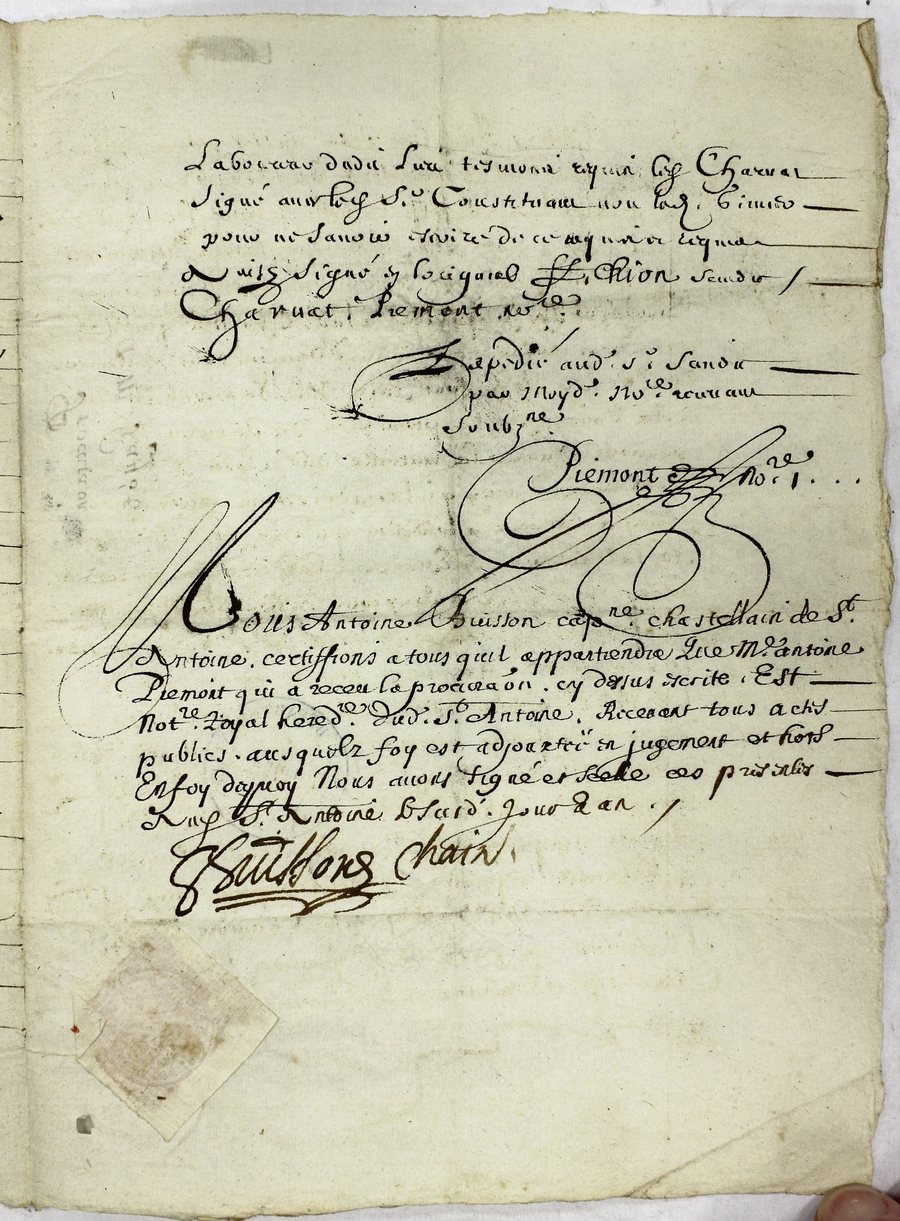 Laboureur dudit lieu tesmoins requis led. Charvat
signé avec led. Sr. Constituant non led.
pour ne sçavoir escrire de ce enquis et requis
signé a loriginal Chion
Charvat. Piemont nore.
Expedié aud. Sr.
par moyd. nore recevant
soubzne.
Piemont nore.
Nous Antoine Buisson capne. chastellain de St.
Antoine. certiffions a tous quil appartiendra que Me. antoine
Piemont qui a receu la procuraon. cy dessus escrite. Est
notre. Royal heredre. dud. St. Antoine. Recevant tous actes
publics. ausquelz foy est adjoustée en jugement et hors
En foy dequoy Nous avons signé et scelle ces presentes
St. Antoine jour & an.
Buisson chain.